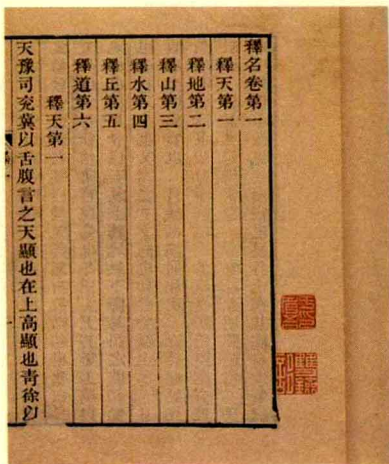 釋名卷第一
釋天第一
釋地第二
釋山第三
釋水第四
釋丘第五
釋道第六
釋天第一
天豫司兗冀以舌腹言之天顯也在上高顯也靑徐以